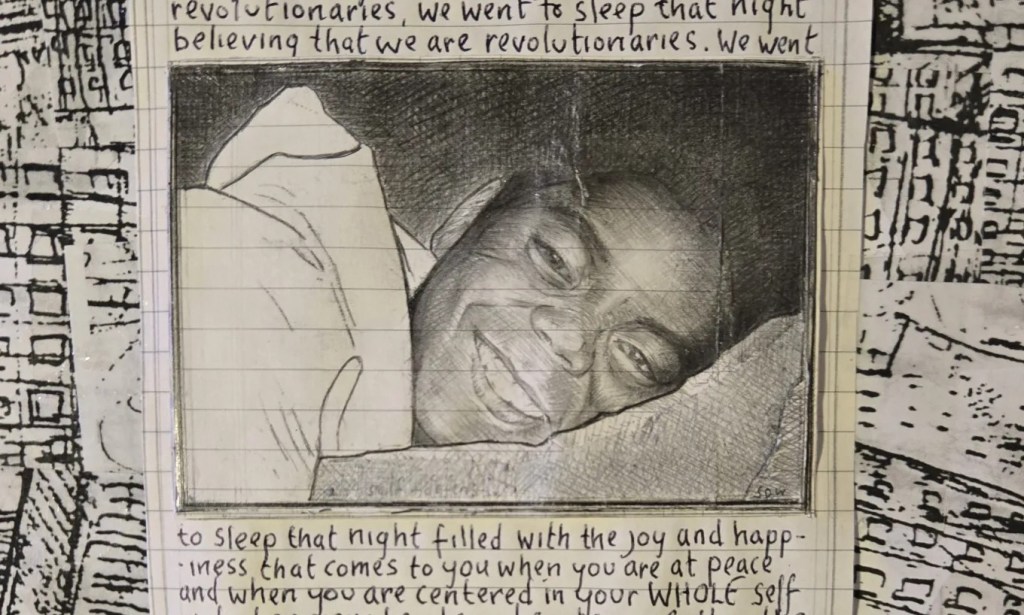 revolutionaries, we went to sleep that night
believing that we are revolutionaries. We went
SDW
to sleep that night filled with the joy and happ-
-iness that comes to you when you are at peace
and when you are centered in your WHOLE self